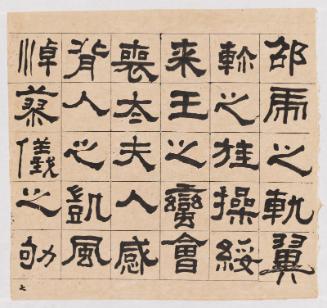 邵虎之軌翼
軫之旌操綏
来王之蠻會
喪太夫人感
背人之凱風
悼蓼儀之劬
七